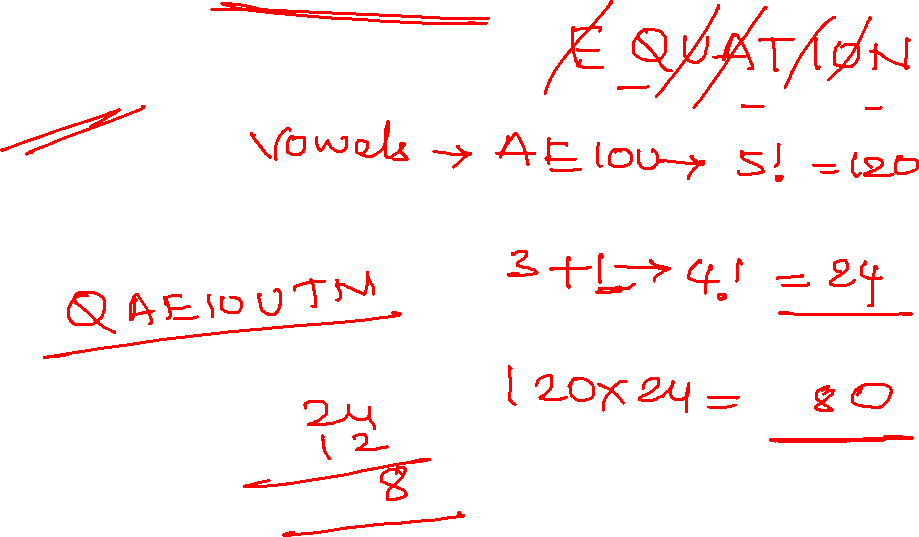 EQUATION
Vowels → AEIOU → 5! = 120
3 + 1 → 4! = 24
QAEIOUTN
120 × 24 = 80
24
12
8